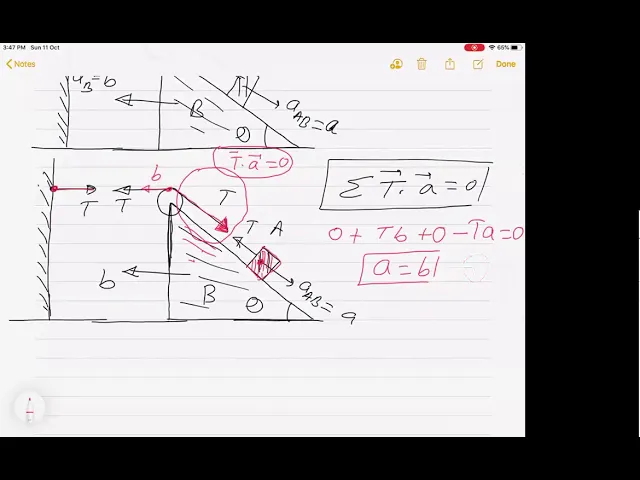 3:47 PM Sun 11 Oct
65%
Notes
Done
a_B = b
B
θ
a_AB = a
T⃗. a⃗ = 0
b
T
T
T
T A
b
B
θ
a_AB = a
Σ T⃗. a⃗ = 0
0 + Tb + 0 - Ta = 0
a = b